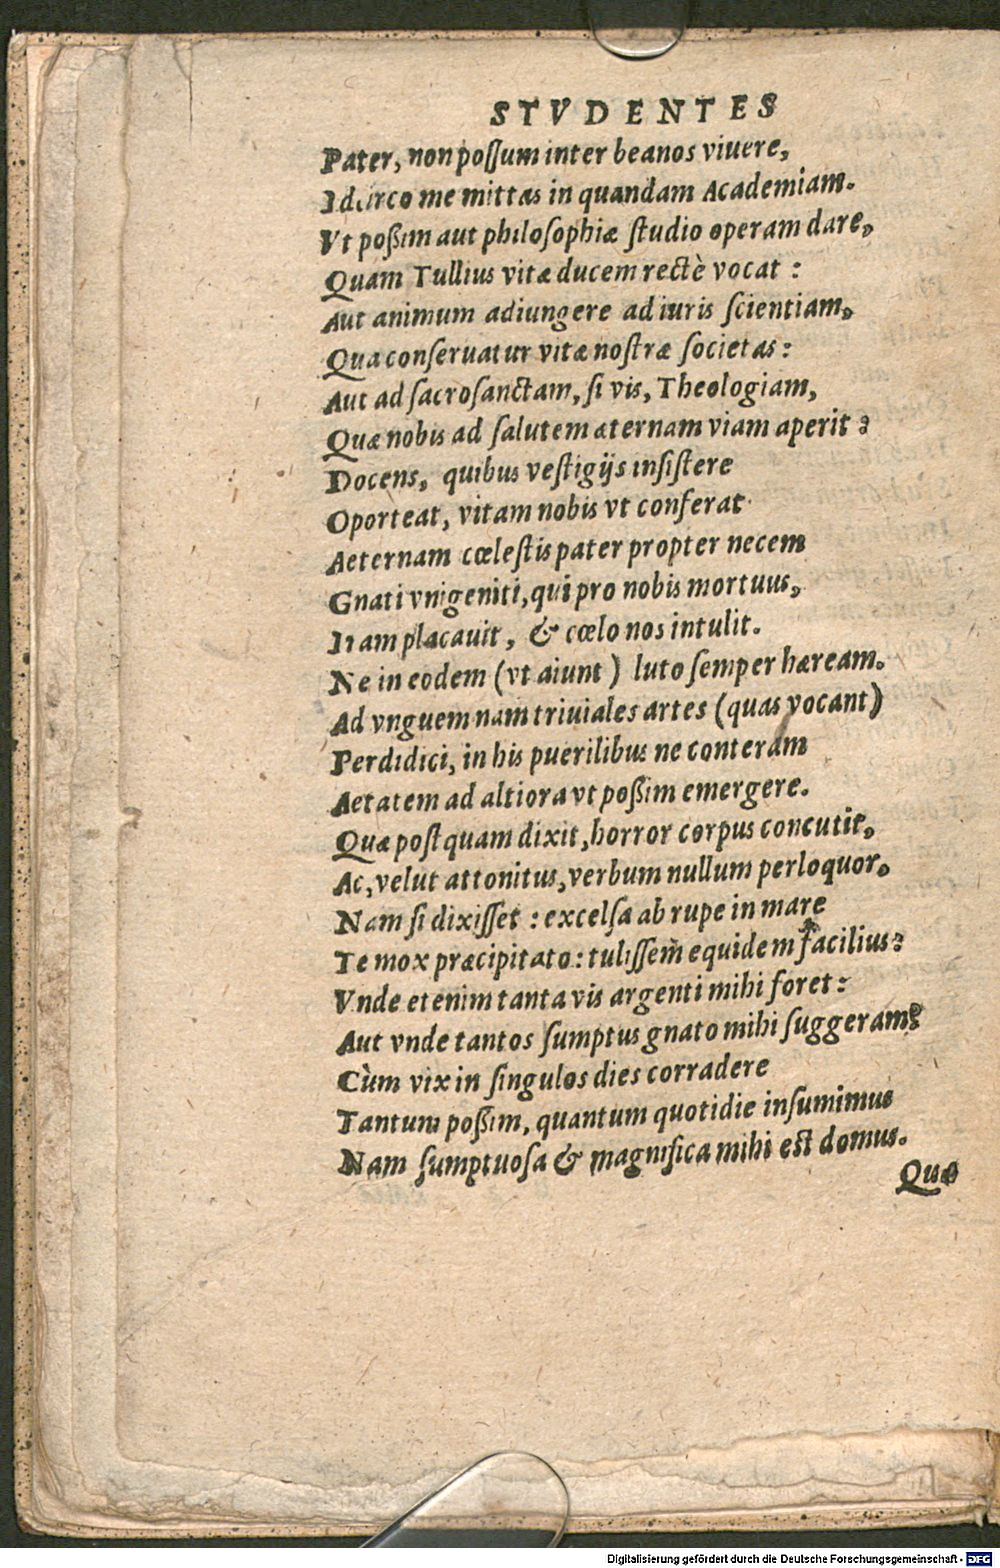 STVDENTES
Pater, non poſſum inter beanos viuere,
Idcirco me mittas in quandam Academiam.
Vt poßim aut philoſophiæ ſtudio operam dare,
Quam Tullius vitæ ducem rectè vocat :
Aut animum adiungere ad iuris ſcientiam,
Qua conſeruatur vitæ noſtræ ſocietas:
Aut ad ſacroſanctam, ſi vis, Theologiam,
Quæ nobis ad ſalutem æternam viam aperit:
Docens, quibus veſtigijs inſiſtere
Oporteat, vitam nobis vt conferat
Aeternam cœleſtis pater propter necem
Gnati vnigeniti, qui pro nobis mortuus,
Iram placauit, & cœlo nos intulit.
Ne in eodem (vt aiunt) luto ſemper hæream.
Ad vnguem nam triuiales artes (quas vocant)
Perdidici, in his puerilibus ne conteram
Aetatem ad altiora vt poßim emergere.
Quæ poſtquam dixit, horror corpus concutit,
Ac, velut attonitus, verbum nullum perloquor,
Nam ſi dixiſſet : excelſa ab rupe in mare
Te mox præcipitato: tuliſſem equidem facilius:
Vnde etenim tanta vis argenti mihi foret:
Aut vnde tantos ſumptus gnato mihi ſuggeram?
Cùm vix in ſingulos dies corradere
Tantum poßim, quantum quotidie inſumimus
Nam ſumptuoſa & magnifica mihi est domus.
Quæ
Digitalisierung gefördert durch die Deutsche Forschungsgemeinschaft - DFG